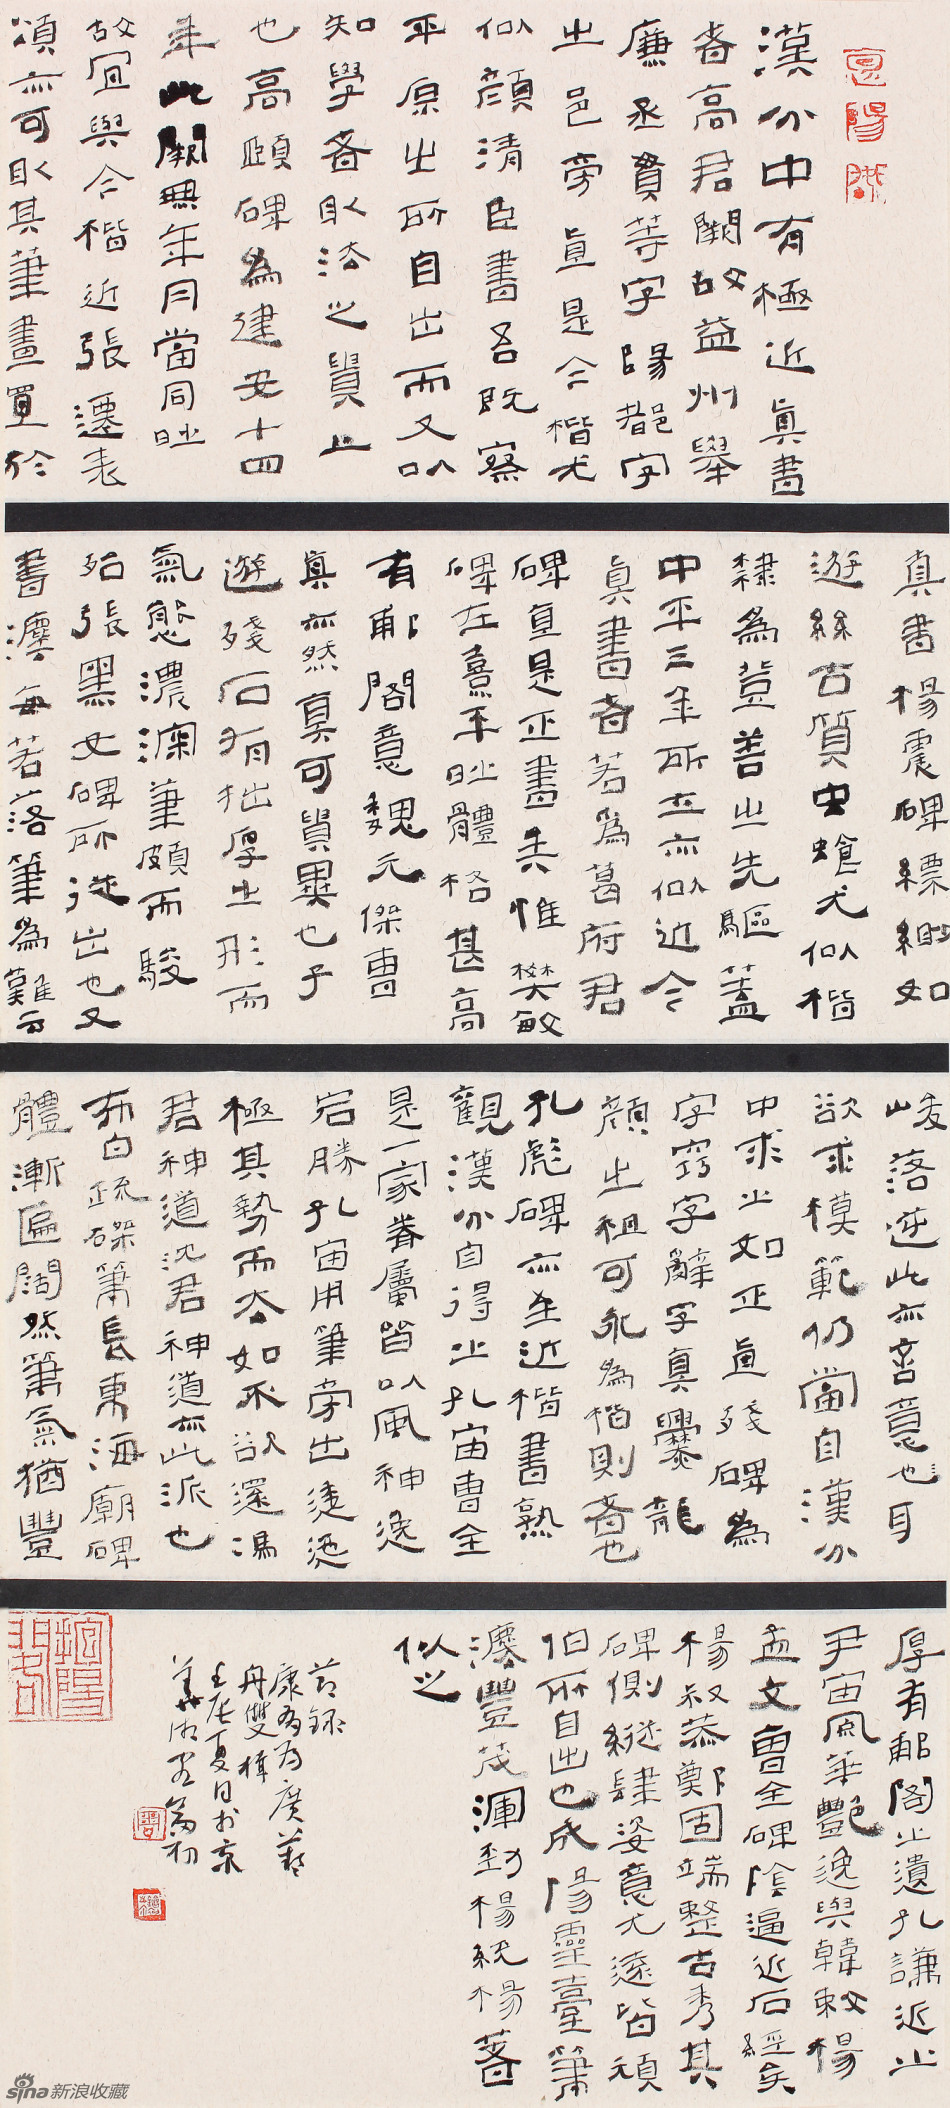 漢分中有極近真書
者高君闕故益州舉
廉丞貫等字陽都字
之邑旁直是今楷尤
似顏清臣書吾既察
平原之所自出而又以
知學者取法之貴上
也高頤碑為建安十四
年此闕無年月當同時
故宜與今楷近張遷表
頌亦可取其筆畫置於
真書楊震碑縹緲如
遊絲古質蟲蝕尤似楷
隸為登善之先驅蓋
中平三年所立亦似近今
真書者若為葛府君
碑直是正書矣惟樊敏
碑在熹平時體格甚高
有郙閣意魏元傑曹
真亦然真可貴異也子
遊殘石有拙厚之形而
氣態濃深筆頗而駿
殆張黑女碑所從出也又
書法每苦落筆為難云
峻落逆此亦言意也耳
欲求模範仍當自漢分
中求之如正直殘碑為
字竅字辭字真爨龍
顏之祖可永為楷則者也
孔彪碑亦至近楷書熟
觀漢分自得之孔宙曹全
是一家眷屬皆以風神逸
宕勝孔宙用筆旁出逶迤
極其勢而去如不欲還馮
君神道沈君神道亦此派也
布白疏磔筆長東海廟碑
體漸匾闊然筆氣猶豐
厚有郙閣之遺孔謙近之
尹宙風華艷逸與韓敕楊
孟文曹全碑陰逼近石經矣
楊叔恭鄭固端整古秀其
碑側縱肆姿意尤遠皆頑
伯所自出也成陽靈臺筆
法豐茂渾勁楊統楊著
似之
節錄
康有为广藝
舟雙楫
壬辰夏日於京
新浪收藏
sina